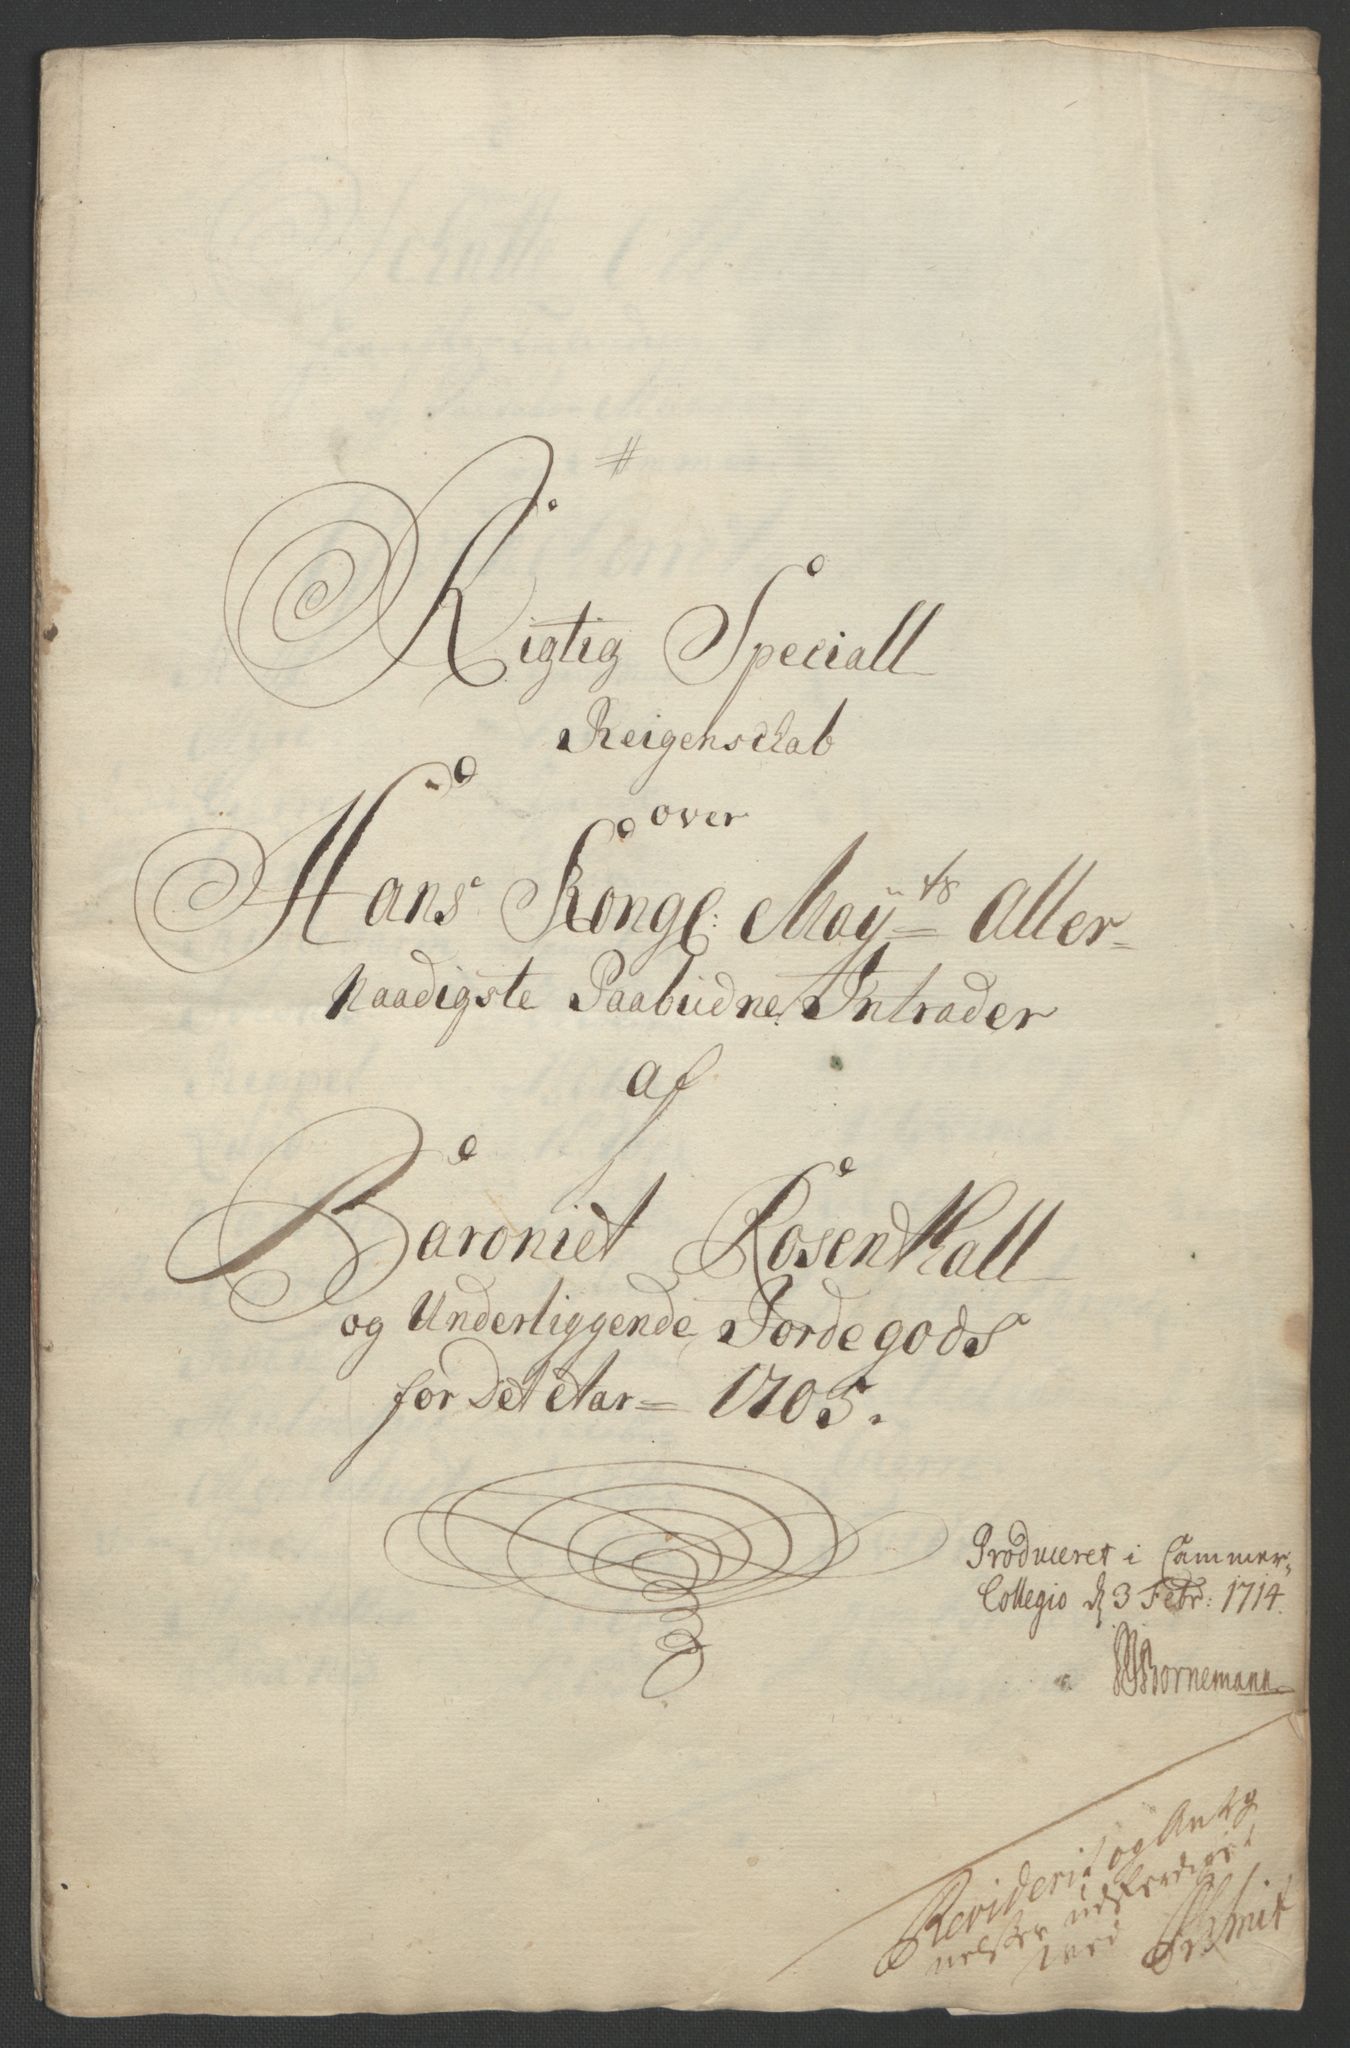 #
Rigtig Speciall
Reigenschab
over
Hans Kongl: Mayᵗˢ Aller=
Naadigste Paabudne Intrader
af
Baroniet Rosenthall
og Underliggende Jordegods
for Det Aar= 1705.
Produceret i Cammer,
Collegio d 3 Febr: 1714.
Bornemann
Reviderit og Anteg
nelser udferdiget
ved Schmit